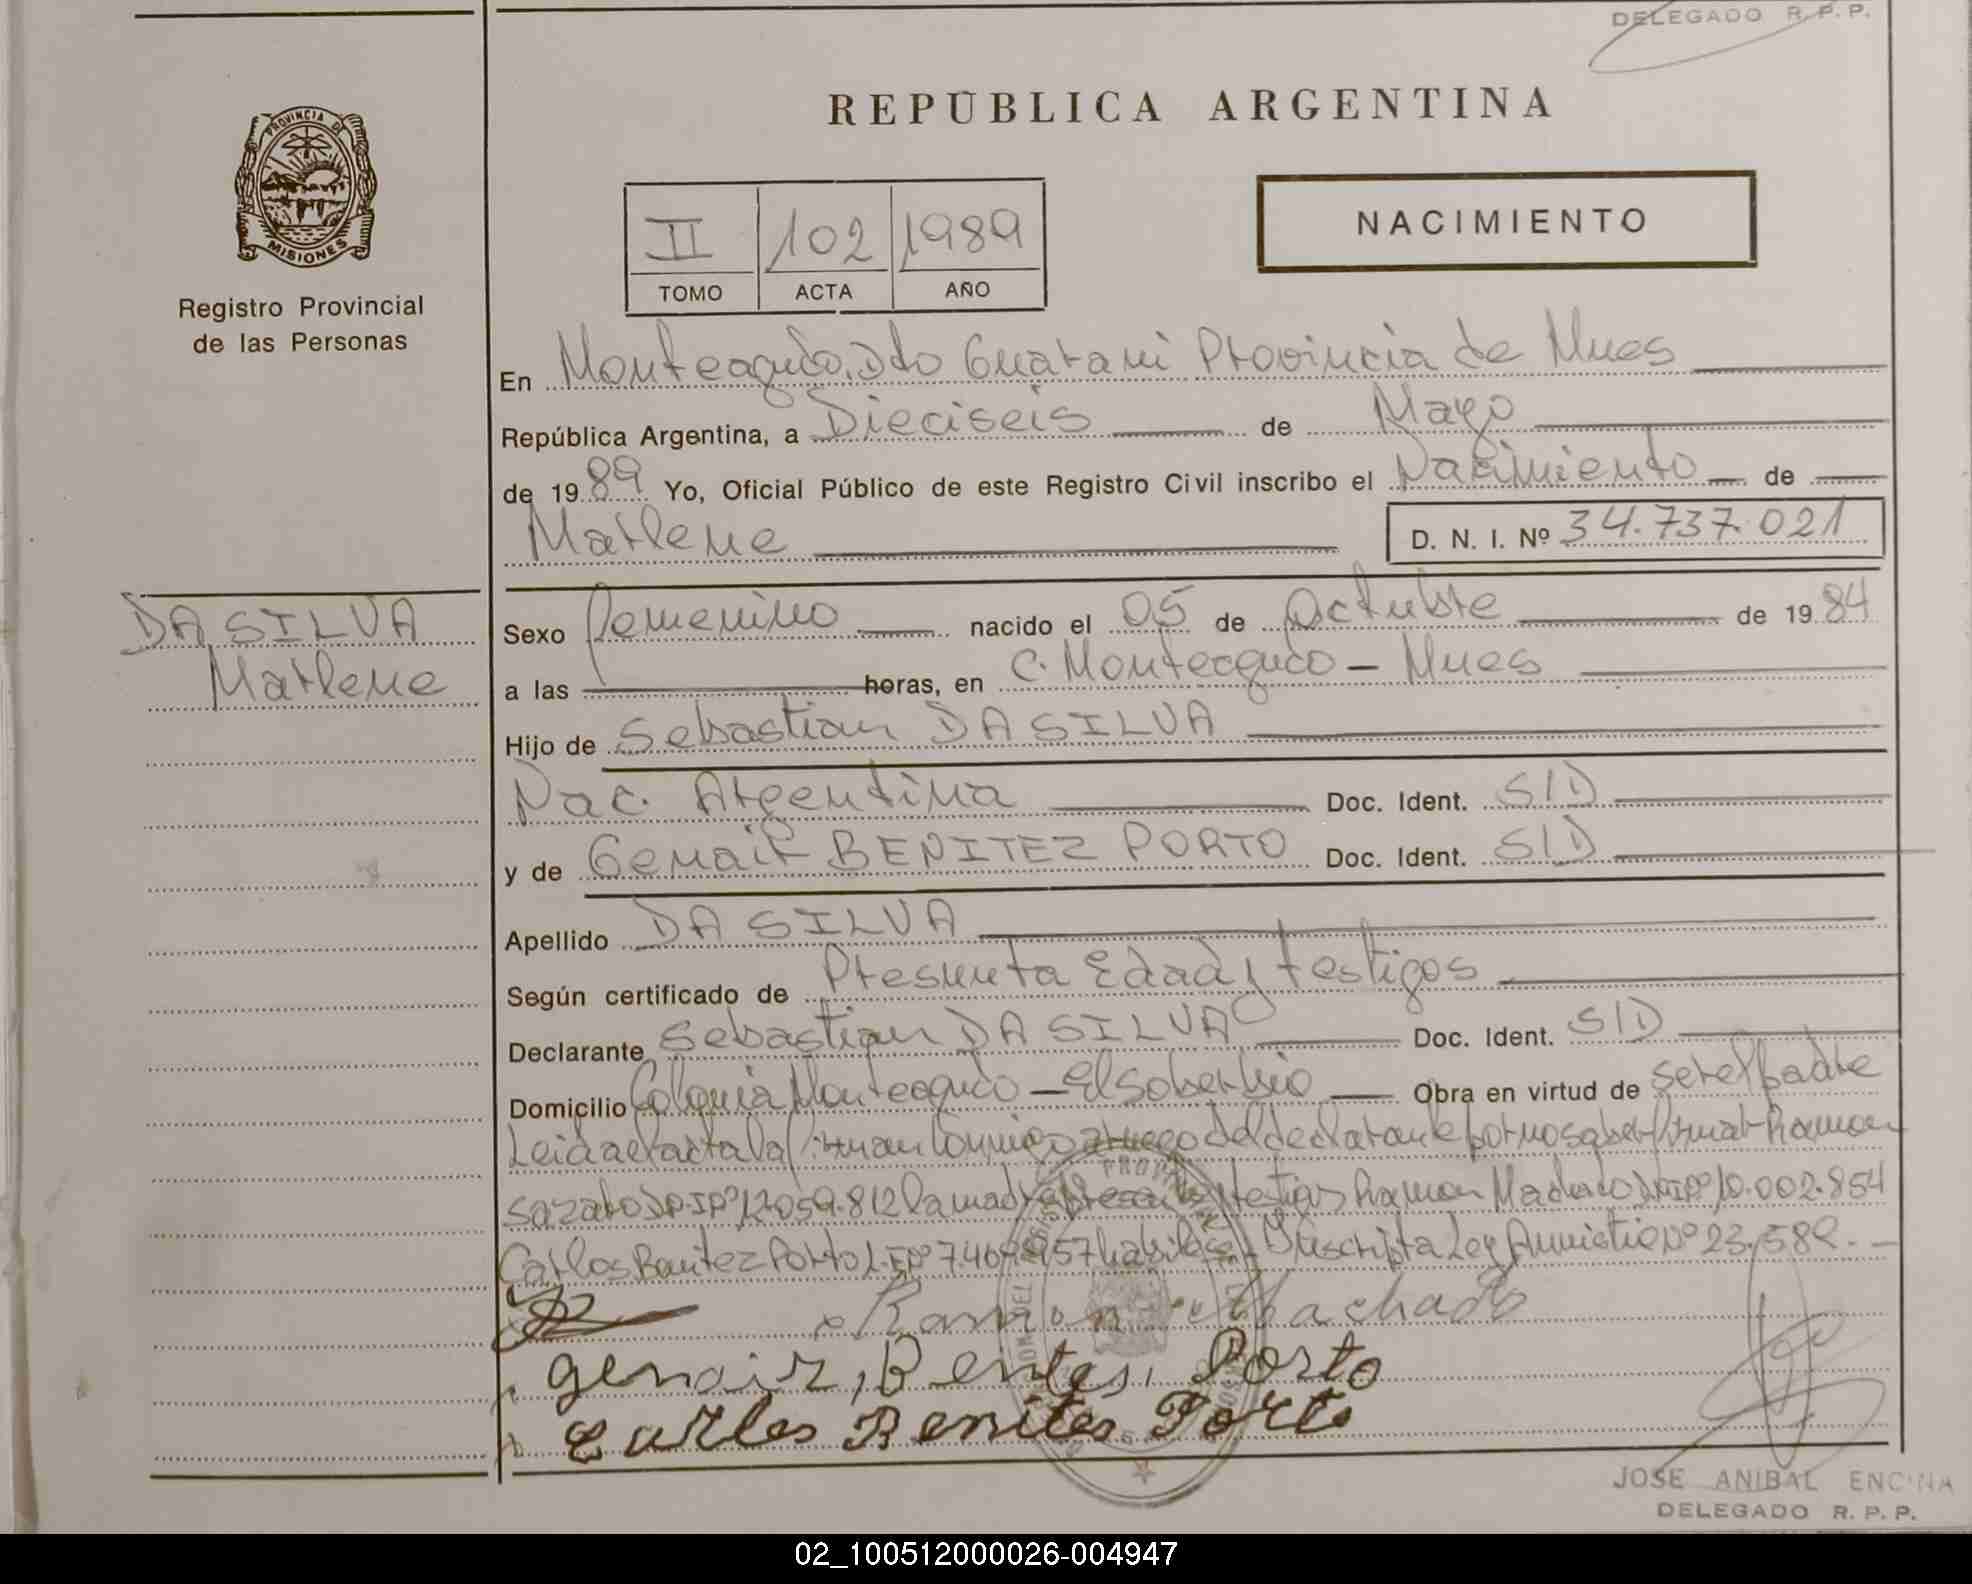 DELEGADO R. P. P.
REPUBLICA ARGENTINA
PROVINCIA DE
MISIONES
Registro Provincial
de las Personas
II 102 1989
TOMO ACTA AÑO
NACIMIENTO
En Monteagudo. Dto Guarani Provincia de Mnes
República Argentina, a Dieciseis de Mayo
de 1989 Yo, Oficial Público de este Registro Civil inscribo el Nacimiento de
Marlene
D. N. I. Nº 34.737.021
DA SILVA
Marlene
Sexo femenino nacido el 05 de Octubre de 1984
a las horas, en C. Monteagudo - Mnes
Hijo de Sebastian DA SILVA
Nac. Argentina Doc. Ident. S/D
y de Genair BENITEZ PORTO Doc. Ident. S/D
Apellido DA SILVA
Según certificado de Presunta Edad y testigos
Declarante Sebastian DA SILVA Doc. Ident. S/D
Domicilio Colonia Monteagudo - El soberbio Obra en virtud de ser el padre
Leida el acta la firman conmigo a ruego del declarante por no saber firmar Ramon
D.N.I Nº la madre presente y testigos Ramon Machado D.N.I Nº 10.002.854
Carlos Benitez Porto L.E Nº habiles. Inscripta Ley Amnistia Nº 23.
Ramon Machado
genair, Bentes, Porto
Carlos Benites Porto
JOSE ANIBAL ENCINA
DELEGADO R. P. P.
02_100512000026-004947